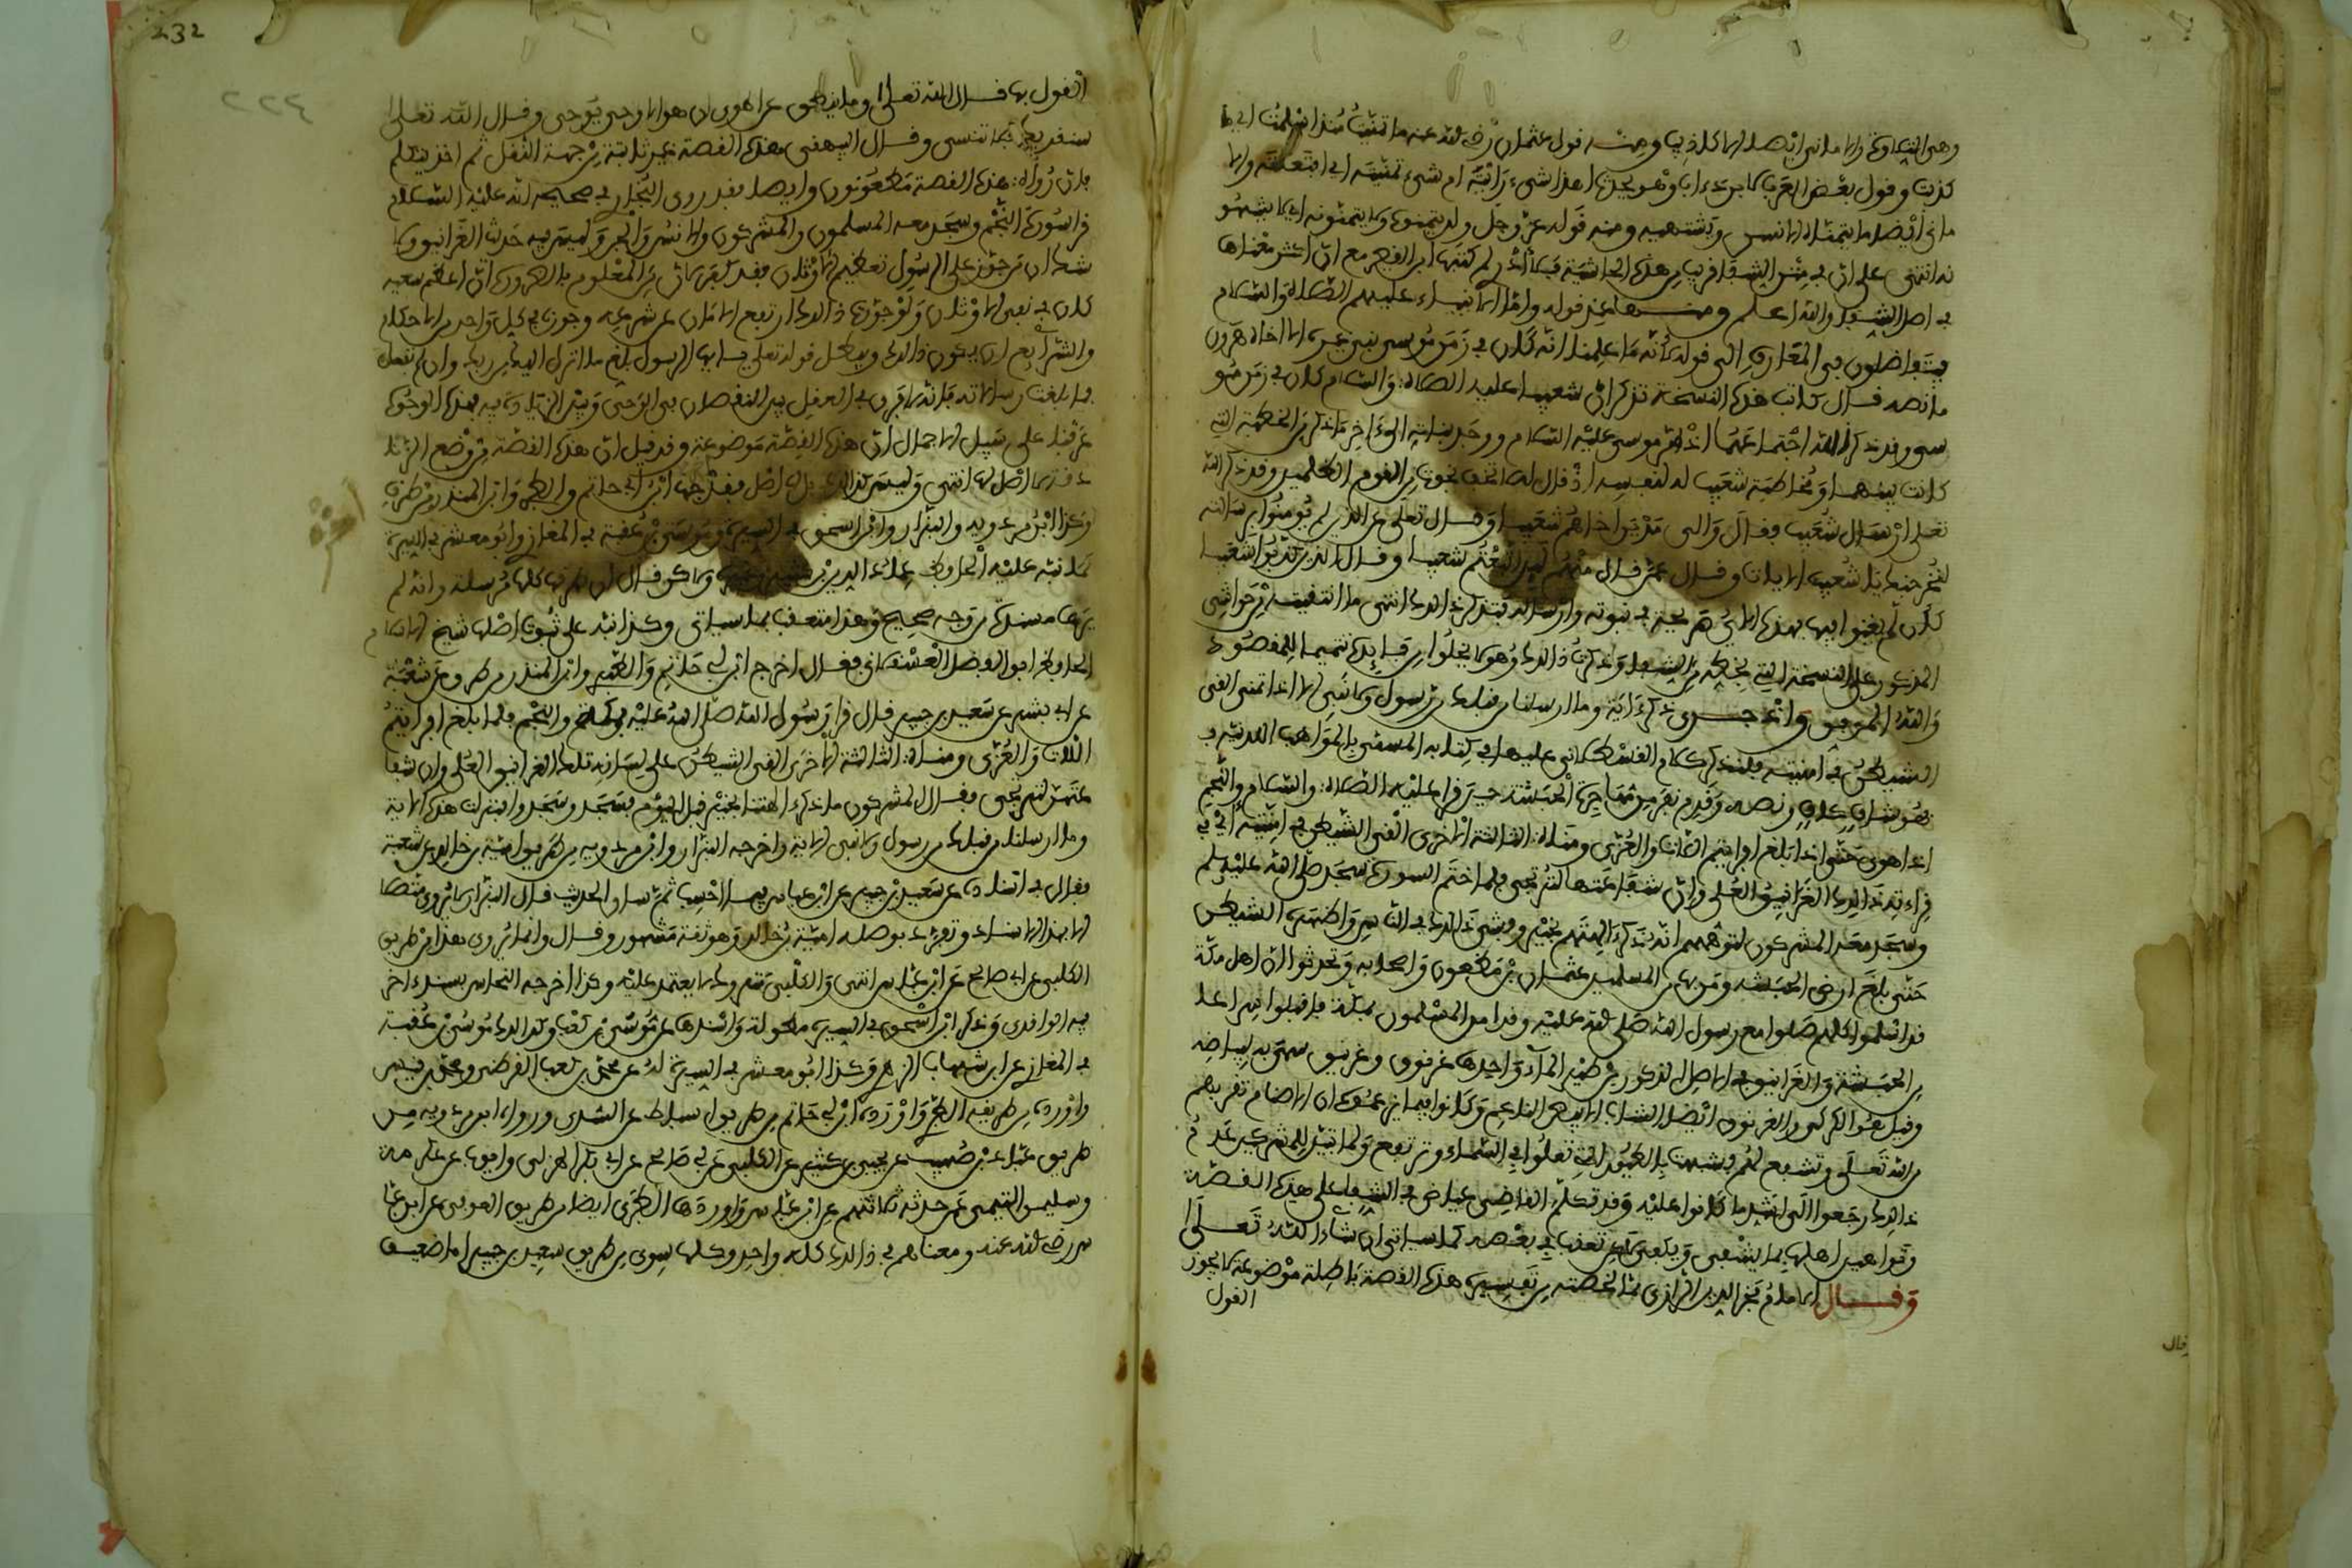 وهي التلاوة والاماني ايضا الاكاذيب ومنه قول عثمان رضي الله عنه ما تمنيت منذ اسلمت اي ما
كذبت وقول بعض العرب لابن داب وهو يحدث اهذا شيء رايته ام شيء تمنيته اي افتعلته والا
ماني ايضا ما يتمناه الانسان ويشتهيه ومنه قوله عز وجل
في اصل الشفا والله اعلم ومنها عند قوله واما الانبياء عليهم الصلاة والسلام
فيتفاضلون في المعارف الى قوله لانه ما علمنا انه كان في زمن موسى نبي غيره الا اخاه هرون
ما نصه قال كاتب هذه النسخة تذكر ان شعيبا عليه الصلاة والسلام كان في زمن مو
سى وقد ذكر الله اجتماعهما
كانت بينهما ومخاطبة شعيب له لنفسه اذ قال لا تخف نجوت من القوم الظالمين وقد ذكر الله
تعلى ارسال شعيب فقال والى مدين اخاهم شعيبا وقال تعلى عن الذين لم يومنوا برسالته
لنخرجنك يا شعيب الايات وقال عمن قال منهم لين اتبعتم شعيبا وقال الذين كذبوا شعيبا
كان لم يغنوا فيها فهذه الاي
والله الموفق وانه جرى ذكر اية وما ارسلنا من قبلك من رسول ولا نبي الا اذا تمنى القى
الشيطن في امنيته فلنذكر كلام القسطلاني عليها في كتابه المسمى بالمواهب اللدنية
فهو شاف كاف ونصه وقدم نفر من مهاجرة الحبشة حين قرا عليه الصلاة والسلام والنجم
اذا هوى حتى اذا بلغ افرايتم اللات والعزى ومناة الثالثة الاخرى القى الشيطن في امنيته اي في
قراءته تلك الغرانيق العلى وان شفاعتها لترتجى فلما ختم السورة سجد صلى الله عليه وسلم
وسجد معه المشركون لتوهمهم انه ذكر الهتهم بخير وفشى ذلك في الناس واظهره الشيطن
حتى بلغ ارض الحبشة ومن بها من المسلمين عثمان بن مظعون واصحابه وتحدثوا ان اهل مكة
قد اسلموا كلهم وصلوا مع رسول الله صلى الله عليه وقد امن المسلمون بمكة فاقبلوا سراعا
من الحبشة والغرانيق في الاصل الذكور من طير الماء واحدها غرنوق وغرنيق سمي به لبياضه
وقيل هو الكركي والغرنوق ايضا الشاب الابيض الناعم وكانوا فيما يزعمون ان الاصنام تقربهم
من الله تعلى وتشفع لهم فشبهت بالطيور التي تعلوا في السماء وترتفع ولما تبين للمشركين عدم
ذلك رجعوا الى اشد ما كانوا عليه وقد تكلم القاضي عياض في الشفا على هذه القصة
وتوهين اصلها بما يشفي ويكفي لكن تعقب في بعضه كما سياتي ان شاء الله تعلى
وقال الامام فخر الدين الرازي مما لخصته من تفسيره هذه القصة باطلة موضوعة لا يجوز
القول
232
٢٢٤
القول بها قال الله تعلى وما ينطق عن الهوى ان هو الا وحي يوحى وقال الله تعلى
سنقريك فلا تنسى وقال البيهقي هذه القصة غير ثابتة من جهة النقل ثم اخذ يتكلم
في ان رواة هذه القصة مطعونون وايضا فقد روى البخاري في صحيحه انه عليه السلام
قرا سورة النجم وسجد معه المسلمون والمشركون والانس والجن وليس فيه حديث الغرانيق ولا
شك ان من جوز على الرسول تعظيم الاوثان فقد كفر لان من المعلوم بالضرورة ان اعظم سعيه
كان في نفي الاوثان ولو جوزنا ذلك ارتفع الامان عن شرعه وجوزنا في كل واحد من الاحكام
والشرايع ان يكون كذلك ويبطل قوله تعلى يايها الرسول بلغ ما انزل اليك من ربك وان لم تفعل
فما بلغت رسالاته فانه لا فرق في العقل بين النقصان في الوحي وبين الزيادة فيه فبهذه الوجوه
عرفنا على سبيل الاجمال ان هذه القصة موضوعة وقد قيل ان هذه القصة من وضع الزنا
دقة لا اصل لها انتهى وليس كذلك بل لها اصل فقد خرجها ابن ابي حاتم والطبري وابن المنذر من طرق
وكذا ابن مردويه والبزار وابن اسحق في السيرة وموسى بن عقبة في المغازي وابو معشر في السيرة
كما نبه عليه الحافظ عماد الدين بن كثير وغيره لكن قال ان طرقها كلها مرسلة وانه لم
يرها مسندة من وجه صحيح وهذا متعقب بما سياتي وكذا نبه على ثبوت اصلها شيخ الاسلام
الحافظ ابو الفضل العسقلاني فقال اخرج ابن ابي حاتم والطبري وابن المنذر من طرق عن شعبة
عن ابي بشر عن سعيد بن جبير قال قرا رسول الله صلى الله عليه بمكة والنجم فلما بلغ افرايتم
اللات والعزى ومناة الثالثة الاخرى القى الشيطن على لسانه تلك الغرانيق العلى وان شفا
عتهن لترتجى فقال المشركون ما ذكر الهتنا بخير قبل اليوم فسجد وسجدوا فنزلت هذه الاية
وما ارسلنا من قبلك من رسول ولا نبي الاية واخرجه البزار وابن مردويه من طريق امية بن خالد عن شعبة
فقال في اسناده عن سعيد بن جبير عن ابن عباس فيما احسب ثم ساق الحديث قال البزار لا يروى متصلا
الا بهذا الاسناد وتفرد بوصله امية بن خالد وهو ثقة مشهور وقال وانما يروى هذا من طريق
الكلبي عن ابي صالح عن ابن عباس انتهى والكلبي متروك لا يعتمد عليه وكذا اخرجه النحاس بسند اخر
فيه الواقدي وذكرها ابن اسحق في السيرة مطولة واسندها عن محمد بن كعب وكذلك موسى بن عقبة
في المغازي عن ابن شهاب الزهري وكذا ابو معشر في السيرة له عن محمد بن كعب القرظي ومحمد بن قيس
واورده من طريقه الطبري واورده ابن ابي حاتم من طريق اسباط عن السدي ورواه ابن مردويه من
طريق عباد بن صهيب عن يحيى بن كثير عن الكلبي عن ابي صالح عن ابي بكر الهذلي وايوب عن عكرمة
وسليمن التيمي عمن حدثه ثلاثتهم عن ابن عباس واوردها الطبري ايضا من طريق العوفي عن ابن عبا
س رضي الله عنه ومعناهم في ذلك كله واحد وكلها سوى من طريق سعيد بن جبير اما ضعيف